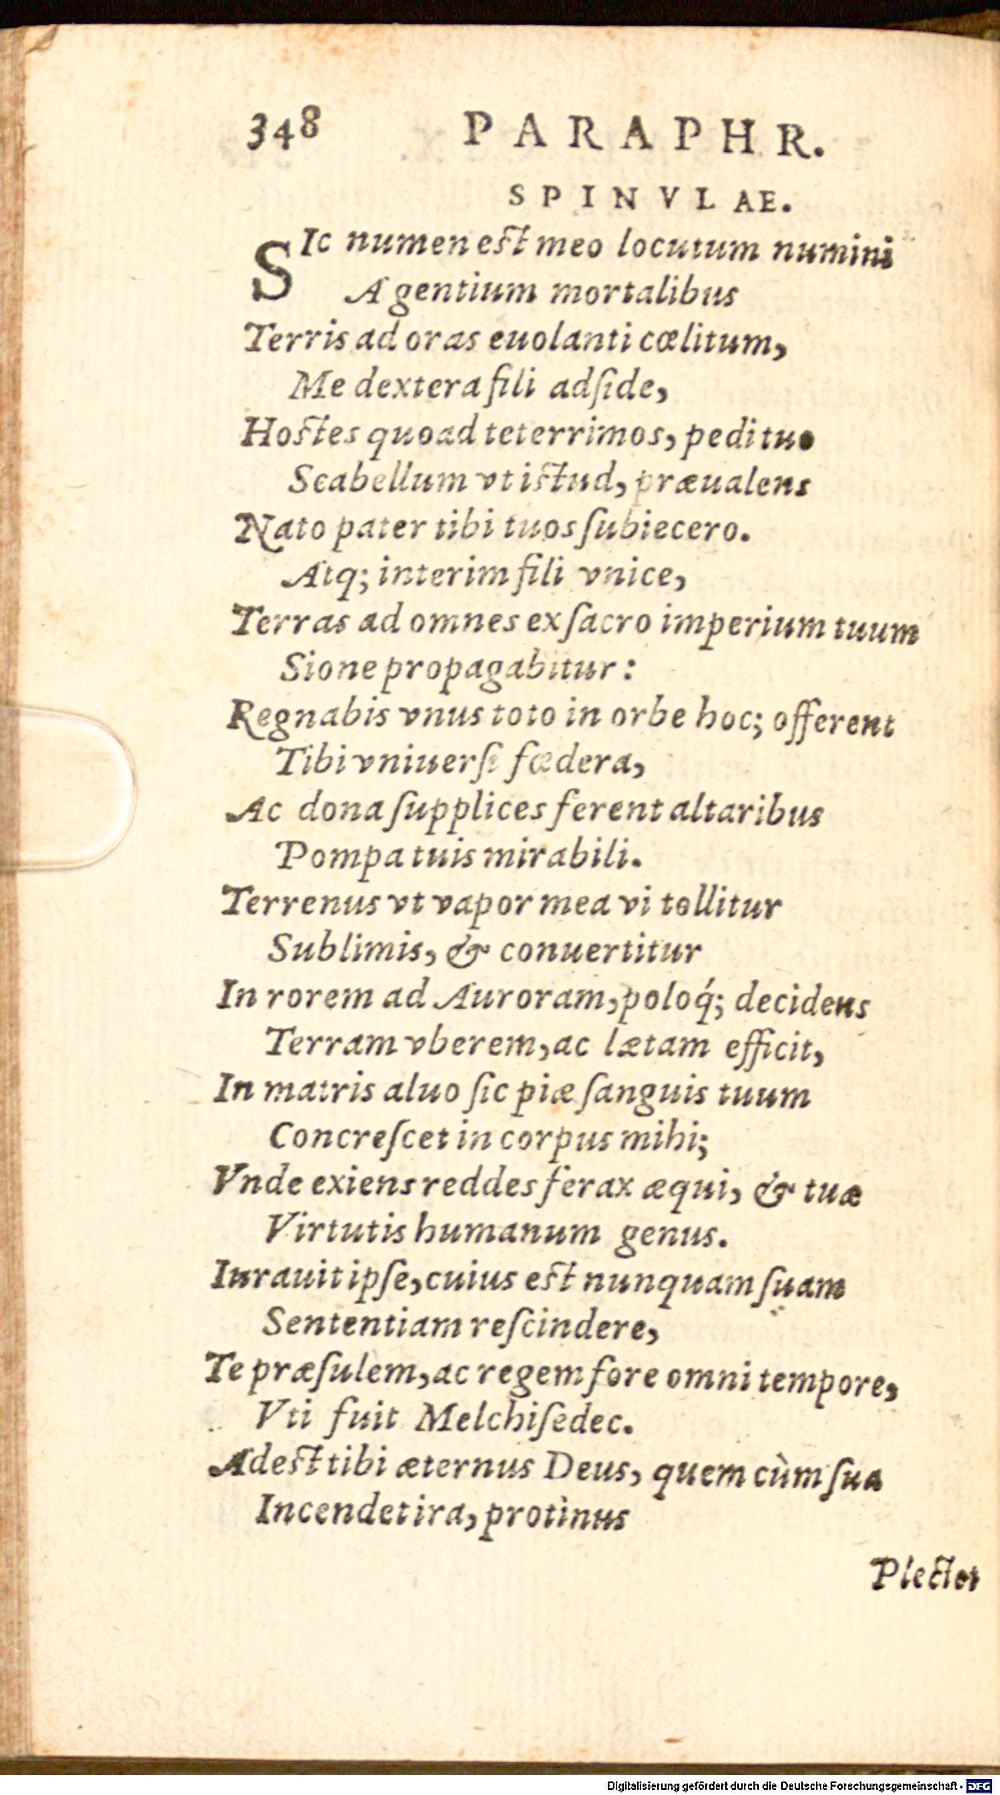 348 PARAPHR.
SPINVLAE.
SIc numen est meo locutum numini
A gentium mortalibus
Terris ad oras euolanti cœlitum,
Me dextera fili adſide,
Hostes quoad teterrimos, pedi tuo
Scabellum vt istud, præualens
Nato pater tibi tuos ſubiecero.
Atq; interim fili vnice,
Terras ad omnes ex ſacro imperium tuum
Sione propagabitur:
Regnabis vnus toto in orbe hoc; offerent
Tibi vniuerſi fœdera,
Ac dona ſupplices ferent altaribus
Pompa tuis mirabili.
Terrenus vt vapor mea vi tollitur
Sublimis, & conuertitur
In rorem ad Auroram, poloq́; decidens
Terram vberem, ac lætam efficit,
In matris aluo ſic piæ ſanguis tuum
Concreſcet in corpus mihi;
Vnde exiens reddes ferax æqui, & tuæ
Virtutis humanum genus.
Iurauit ipſe, cuius est nunquam ſuam
Sententiam reſcindere,
Te præſulem, ac regem fore omni tempore,
Vti fuit Melchiſedec.
Adest tibi æternus Deus, quem cùm ſua
Incendet ira, protinus
Plectet
Digitalisierung gefördert durch die Deutsche Forschungsgemeinschaft - DFG